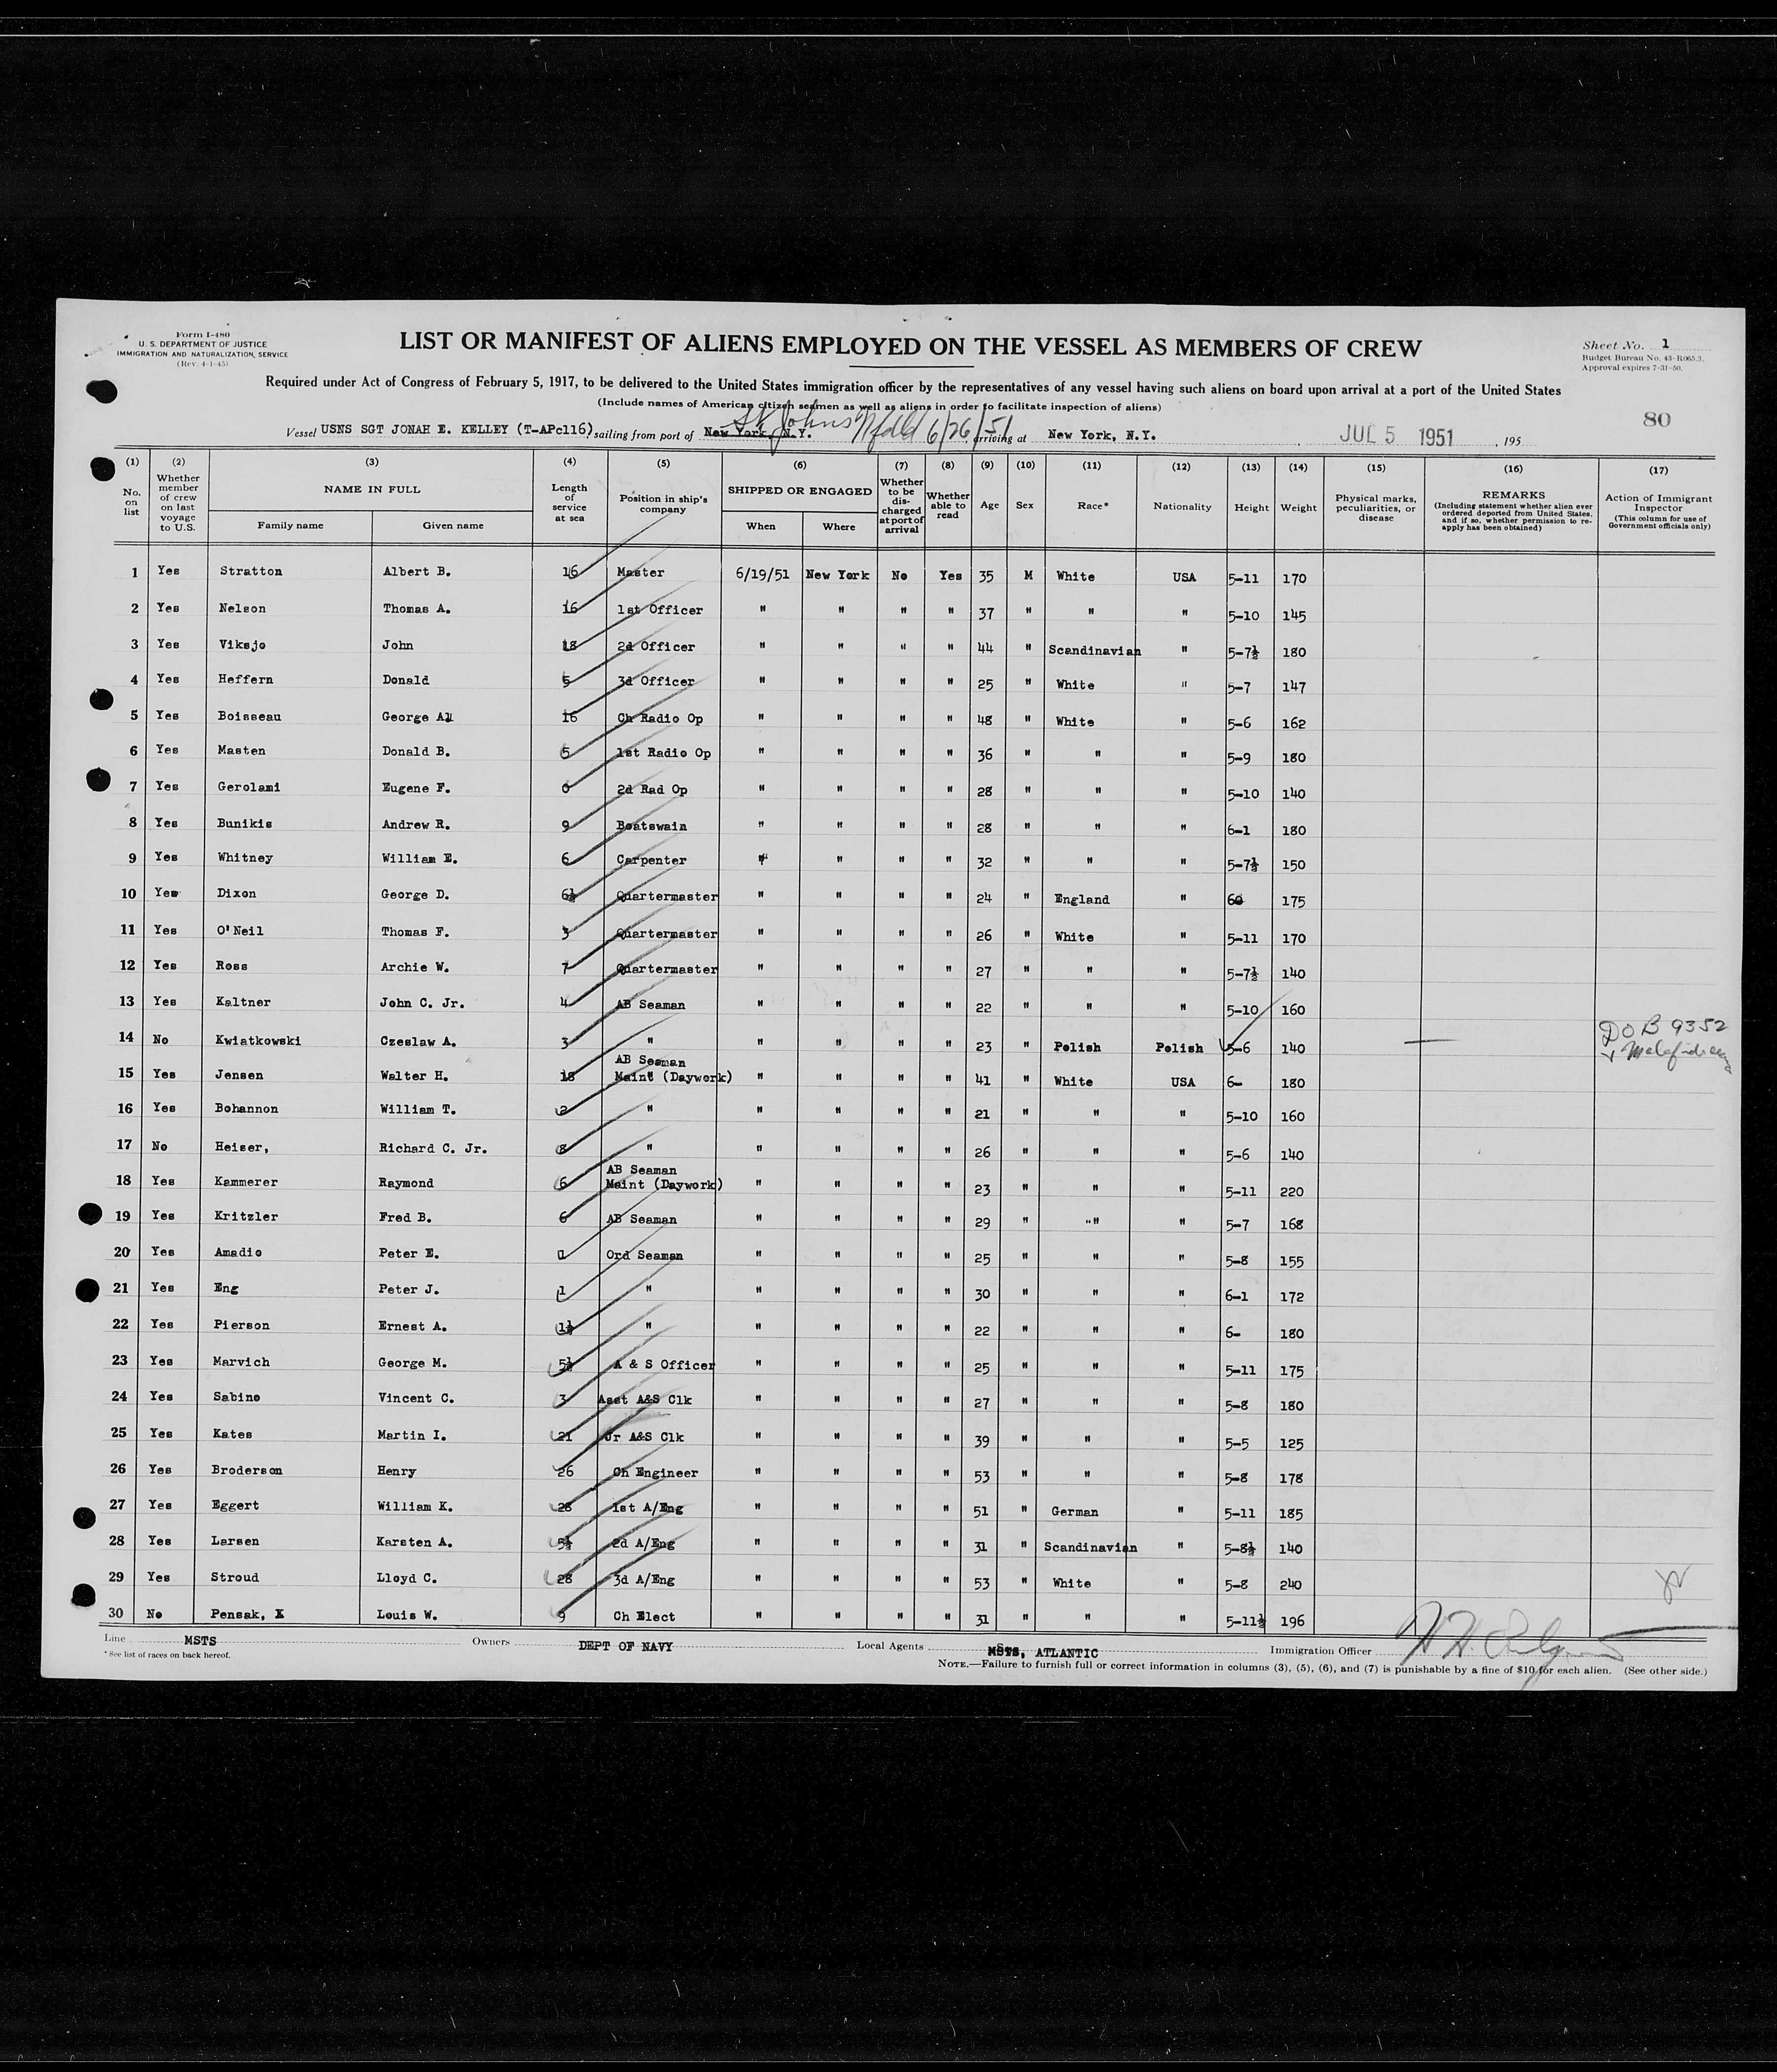 Form I-480
U. S. DEPARTMENT OF JUSTICE
IMMIGRATION AND NATURALIZATION SERVICE
(Rev. 4-1-45)
LIST OR MANIFEST OF ALIENS EMPLOYED ON THE VESSEL AS MEMBERS OF CREW
Sheet No. 1
Budget Bureau No. 43-R065.3.
Approval expires 7-31-50.
Required under Act of Congress of February 5, 1917, to be delivered to the United States immigration officer by the representatives of any vessel having such aliens on board upon arrival at a port of the United States
(Include names of American citizen seamen as well as aliens in order to facilitate inspection of aliens)
80
Vessel USNS SGT JONAH E. KELLEY (T-APc116) sailing from port of New York, N.Y. St Johns Nfld 6/26/51 arriving at New York, N.Y. JUL 5 1951, 195
(1) (2) (3) (4) (5) (6) (7) (8) (9) (10) (11) (12) (13) (14) (15) (16) (17)
No. on list
Whether member of crew on last voyage to U.S.
NAME IN FULL
Family name
Given name
Length of service at sea
Position in ship's company
SHIPPED OR ENGAGED
When
Where
Whether to be discharged at port of arrival
Whether able to read
Age
Sex
Race*
Nationality
Height
Weight
Physical marks, peculiarities, or disease
REMARKS
(Including statement whether alien ever ordered deported from United States, and if so, whether permission to reapply has been obtained)
Action of Immigrant Inspector
(This column for use of Government officials only)
1 Yes Stratton Albert B. 16 Master 6/19/51 New York No Yes 35 M White USA 5-11 170
2 Yes Nelson Thomas A. 16 1st Officer " " " " 37 " " " 5-10 145
3 Yes Viksjo John 18 2d Officer " " " " 44 " Scandinavian " 5-7½ 180
4 Yes Heffern Donald 5 3d Officer " " " " 25 " White " 5-7 147
5 Yes Boisseau George A. 16 Ch Radio Op " " " " 48 " White " 5-6 162
6 Yes Masten Donald B. 5 1st Radio Op " " " " 36 " " " 5-9 180
7 Yes Gerolami Eugene F. 2d Rad Op " " " " 28 " " " 5-10 140
8 Yes Bunikis Andrew R. 9 Boatswain " " " " 28 " " " 6-1 180
9 Yes Whitney William E. 6 Carpenter " " " " 32 " " " 5-7½ 150
10 Yes Dixon George D. 6½ Quartermaster " " " " 24 " England " 60 175
11 Yes O'Neil Thomas F. 3 Quartermaster " " " " 26 " White " 5-11 170
12 Yes Ross Archie W. 7 Quartermaster " " " " 27 " " " 5-7½ 140
13 Yes Kaltner John C. Jr. 4 AB Seaman " " " " 22 " " " 5-10 160
14 No Kwiatkowski Czeslaw A. 3 " " " " " 23 " Polish Polish 5-6 140 DOB 9352
15 Yes Jensen Walter H. 18 AB Seaman Maint (Daywork) " " " " 41 " White USA 6- 180
16 Yes Bohannon William T. 2 " " " " " 21 " " " 5-10 160
17 No Heiser, Richard C. Jr. 8 " " " " " 26 " " " 5-6 140
18 Yes Kammerer Raymond 6 AB Seaman Maint (Daywork) " " " " 23 " " " 5-11 220
19 Yes Kritzler Fred B. 6 AB Seaman " " " " 29 " " " 5-7 168
20 Yes Amadio Peter E. 1 Ord Seaman " " " " 25 " " " 5-8 155
21 Yes Eng Peter J. 1 " " " " " 30 " " " 6-1 172
22 Yes Pierson Ernest A. 1½ " " " " " 22 " " " 6- 180
23 Yes Marvich George M. 5½ A & S Officer " " " " 25 " " " 5-11 175
24 Yes Sabino Vincent C. 3 Asst A&S Clk " " " " 27 " " " 5-8 180
25 Yes Kates Martin I. 21 Jr A&S Clk " " " " 39 " " " 5-5 125
26 Yes Broderson Henry 26 Ch Engineer " " " " 53 " " " 5-8 178
27 Yes Eggert William K. 28 1st A/Eng " " " " 51 " German " 5-11 185
28 Yes Larsen Karsten A. 5½ 2d A/Eng " " " " 31 " Scandinavian " 5-8½ 140
29 Yes Stroud Lloyd C. 28 3d A/Eng " " " " 53 " White " 5-8 240
30 No Pensak, X Louis W. 9 Ch Elect " " " " 31 " " " 5-11½ 196
Line MSTS Owners DEPT OF NAVY Local Agents MSTS, ATLANTIC Immigration Officer
*See list of races on back hereof.
NOTE.—Failure to furnish full or correct information in columns (3), (5), (6), and (7) is punishable by a fine of $10 for each alien. (See other side.)